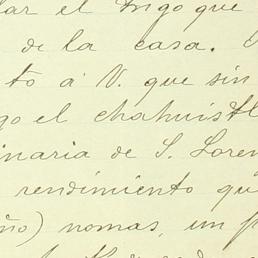 lar el trigo que
de la casa.
to á V. que sin
go el chahuistl
inaria de S. Loren
rendimiento qu
ño) nomas, un p